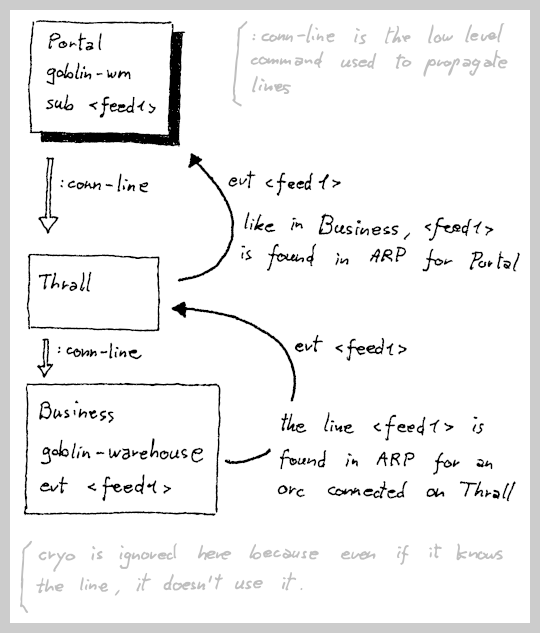 Portal
goblin-wm
sub <feed1>
:conn-line is the low level
command used to propagate
lines
:conn-line
evt <feed1>
like in Business, <feed1>
is found in ARP for Portal
Thrall
:conn-line
evt <feed1>
Business
goblin-warehouse
evt <feed1>
the line <feed1> is
found in ARP for an
orc connected on Thrall
cryo is ignored here because even if it knows
the line, it doesn't use it.